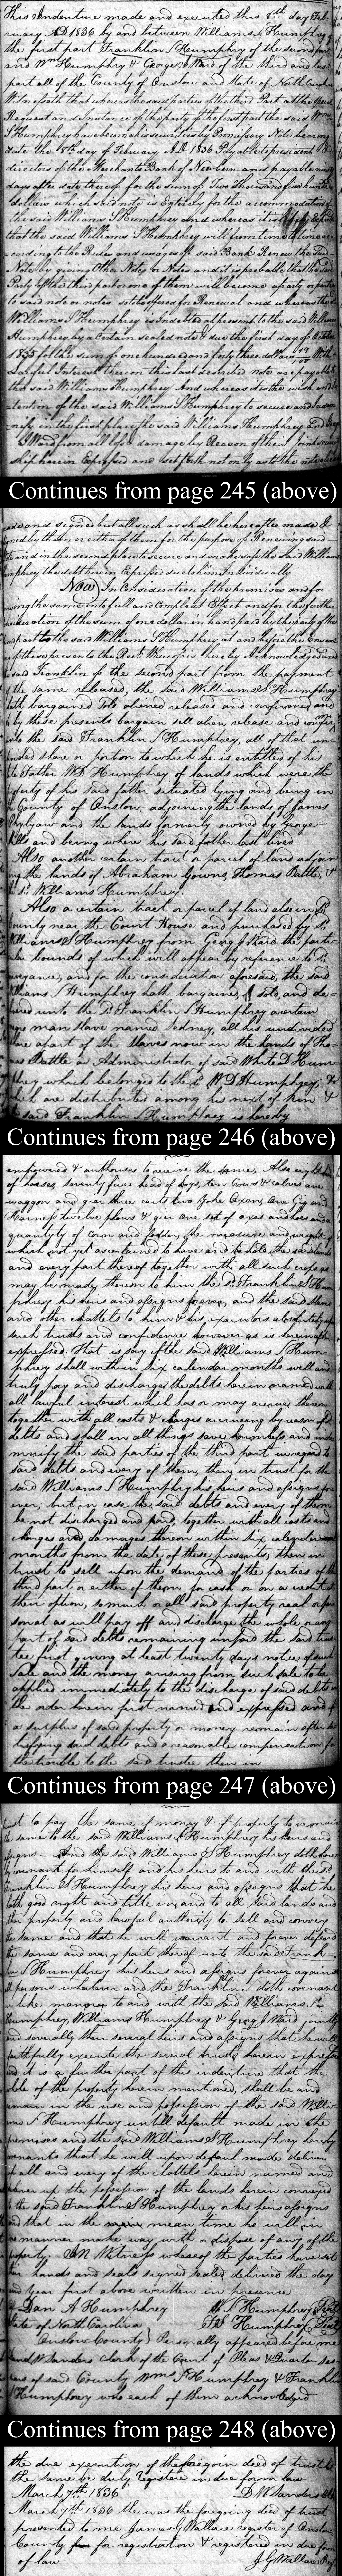 This Indenture made and executed this 8th day Feb-
ruary AD 1836 by and between Williams S Humphrey of
the first part Franklin S Humphrey of the second part
and Wm Humphrey & George J Ward of the third and last
part all of the County of Onslow and State of North Carolina
Witnesseth that whereas the said parties of the third Part at the special
Request and instance of the party of the first part the said Wms
S Humphrey have become his securities by Promissory Note bearing
date the 15th day of February AD 1836 Payable to president &
directors of the Merchants Bank of Newbern and payable
days after date thereof for the sum of Two thousand five hundred
dollars which said note is Entirely for the accommodation of
the said Williams S Humphrey and whereas it
that the said Williams S Humphrey will from time to time ac-
cording to the Rules and usages of said Bank Renew the said
Note by giving Other Note or Notes and it is probable that the said
Party of the third part or one of them will become a party or parties
to said note or notes so to be offered for Renewal and whereas the sd
Williams S Humphrey is indebted at present to the said William
Humphrey by a certain sealed note & due the first day of October
1835 for the sum of one hundred and forty three dollars With
Lawful Interest thereon this last described note are payable to
the said William Humphrey And whereas it is the wish and in-
tention of the said Williams S Humphrey to secure and indem-
nify in the first place the said Williams Humphrey and George
J Ward from all loss & damage by Reason of their
ship herein Expressed and set forth not only as to the notes already
Continues from page 245 (above)
made and signed but all such as shall be hereafter made &
signed by them or either of them for the purpose of Renewing said
note and in the second place to secure and make safe the said William
Humphrey the debt herein Expressed due to him Individually
Now In Consideration of the premises and for
carrying the same into full and Compleat Effect and for the further
consideration of the sum of one dollar in hand paid by the party of the
second part to the said Williams S Humphrey at and before the Execution
of these presents the Rect. Whereof is hereby Acknowledged and
the said Franklin of the second part from the payment
of the same released, the said Williams S Humphrey
hath bargained sold aliened released and confirmed and
do by these presents bargain sell alien release and confirm
unto the said Franklin S Humphrey, all of that un-
divided share or portion to which he is entitled of his
late Father W D Humphrey of lands which were the
property of his said father situated lying and being in
the County of Onslow adjoining the lands of James
Philyaw and the lands formerly owned by George
Mills and being where his said father last lived
Also another certain tract or parcel of land adjoin-
ing the lands of Abraham Gowns, Thomas Battle, &
the sd. Williams Humphrey.
Also a certain tract or parcel of land also in sd.
County near the Court House and purchased by sd.
Williams S Humphrey from Georg J Ward the parti-
cular bounds of which will appear by reference to sd.
conveyance, and for the consideration aforesaid, the said
Williams S Humphrey hath bargained, sold, and de-
livered unto the sd. Franklin S Humphrey a certain
negro man slave named Sedney, all his undivided
share apart of the slaves now in the hands of Tho-
mas Battle as Administrator of said White D Hum-
phrey which belonged to the sd. W D Humphrey, &
which are distributed among his next of kin &
the said Franklin S Humphrey is hereby
Continues from page 246 (above)
empowered & authorised to receive the same. Also eight head
of horses, seventy five head of hogs, ten Cows & calves one
waggon and gier three carts two yoke Oxen, One Gig and
Harness twelve plows & gier one set of axes and hoes and a
quantity of corn and fodder, the measure and weight of
which not yet ascertained to have and to hold the said lands
and every part thereof together with all such crops as
may be made thereon to him the sd. Franklin S Hum-
phrey his heirs and assigns forever, and the said slaves
and other chattels to him & his executors absolutely upon
such trusts and confidence however as is hereinafter
expressed. That is say if the said Williams S Hum-
phrey shall within six calendar months well and
truly pay and discharge the debts herein named with
all lawful interest which has or may accrue thereon
together with all costs & charges accrueing by reason of sd
debts and shall in all things save harmless and indem-
nnify the said parties of the third part in regard to
said debts and every of them, then in trust for the
said Williams S Humphrey his heirs and assigns for-
ever; but in case the said debts and every of them
be not discharged and paid, together with all costs and
charges and damages thereon within six calendar
months from the date of these presents, then in
trust to sell upon the demand of the parties of the
third part or either of them, for cash or on a credit at
their option, so much or all said property real or per-
sonal as will pay off and discharge the whole or any
part of said debts remaining unpaid the said trus-
tee first giving at least twenty days notice of such
sale and the money arising from such sale to be
applied immediately to the discharge of said debts in
the order herein first named and expressed and if
a surplus of said property or money remain after sa-
tisfying said debts and a reasonable compensation for
the trouble to the said trustee then in
Continues from page 247 (above)
trust to pay the same, if money & if property to reconvey
the same to the said Williams S Humphrey his heirs and
assigns. And the said Williams S Humphrey doth here-
by covenant for himself and his heirs to and with the sd.
Franklin S Humphrey his heirs and assigns that he
hath good right and title in and to all said lands and
other property and lawful authority to sell and convey
the same and that he will warrant and forever defend
the same and every part thereof unto the said Frank-
lin S Humphrey his heirs and assigns forever against
all persons whatever and the Franklin S doth covenant
in like manner to and with the said Williams S.
Humphrey, Williams Humphrey & Georg J Ward, jointly
and severally their several heirs and assigns that he will
faithfully execute the several trusts herein expressed
and it is a further part of this indenture that the
whole of the property herein mentioned, shall be and
remain in the use and possession of the said Willi-
ams S Humphrey until default made in the
premises and the said Williams S Humphrey hereby
covenants that he will upon default made deliver
up all and every of the chattels herein named and
deliver up the possession of the lands herein conveyed
to the said Franklin S Humphrey or his heirs assigns
and that in the mean time he will in
no manner make way with or dispose of any of the
property. IN Witness whereof the parties have set
their hands and seals signed sealed delivered the day
and year first above written in presence
of Dan A Humphrey W. S. Humphrey Seal
State of North Carolina F. S. Humphrey Seal
Onslow County } Personally appeared before me
David W Sanders Clerk of the Court of Pleas & Quarter Ses-
sions of said County Wms S Humphrey & Franklin
S Humphrey who each of them acknowledged
Continues from page 248 (above)
the due execution of the foregoin deed of trust let
the same be duly registered in due form law
March 7th 1836 D. W. Sanders Clk
March 7th 1836 the was the foregoing deed of trust
presented to me James G Wallace register of Onslow
County for registration & registered in due form
of law J G Wallace Reg